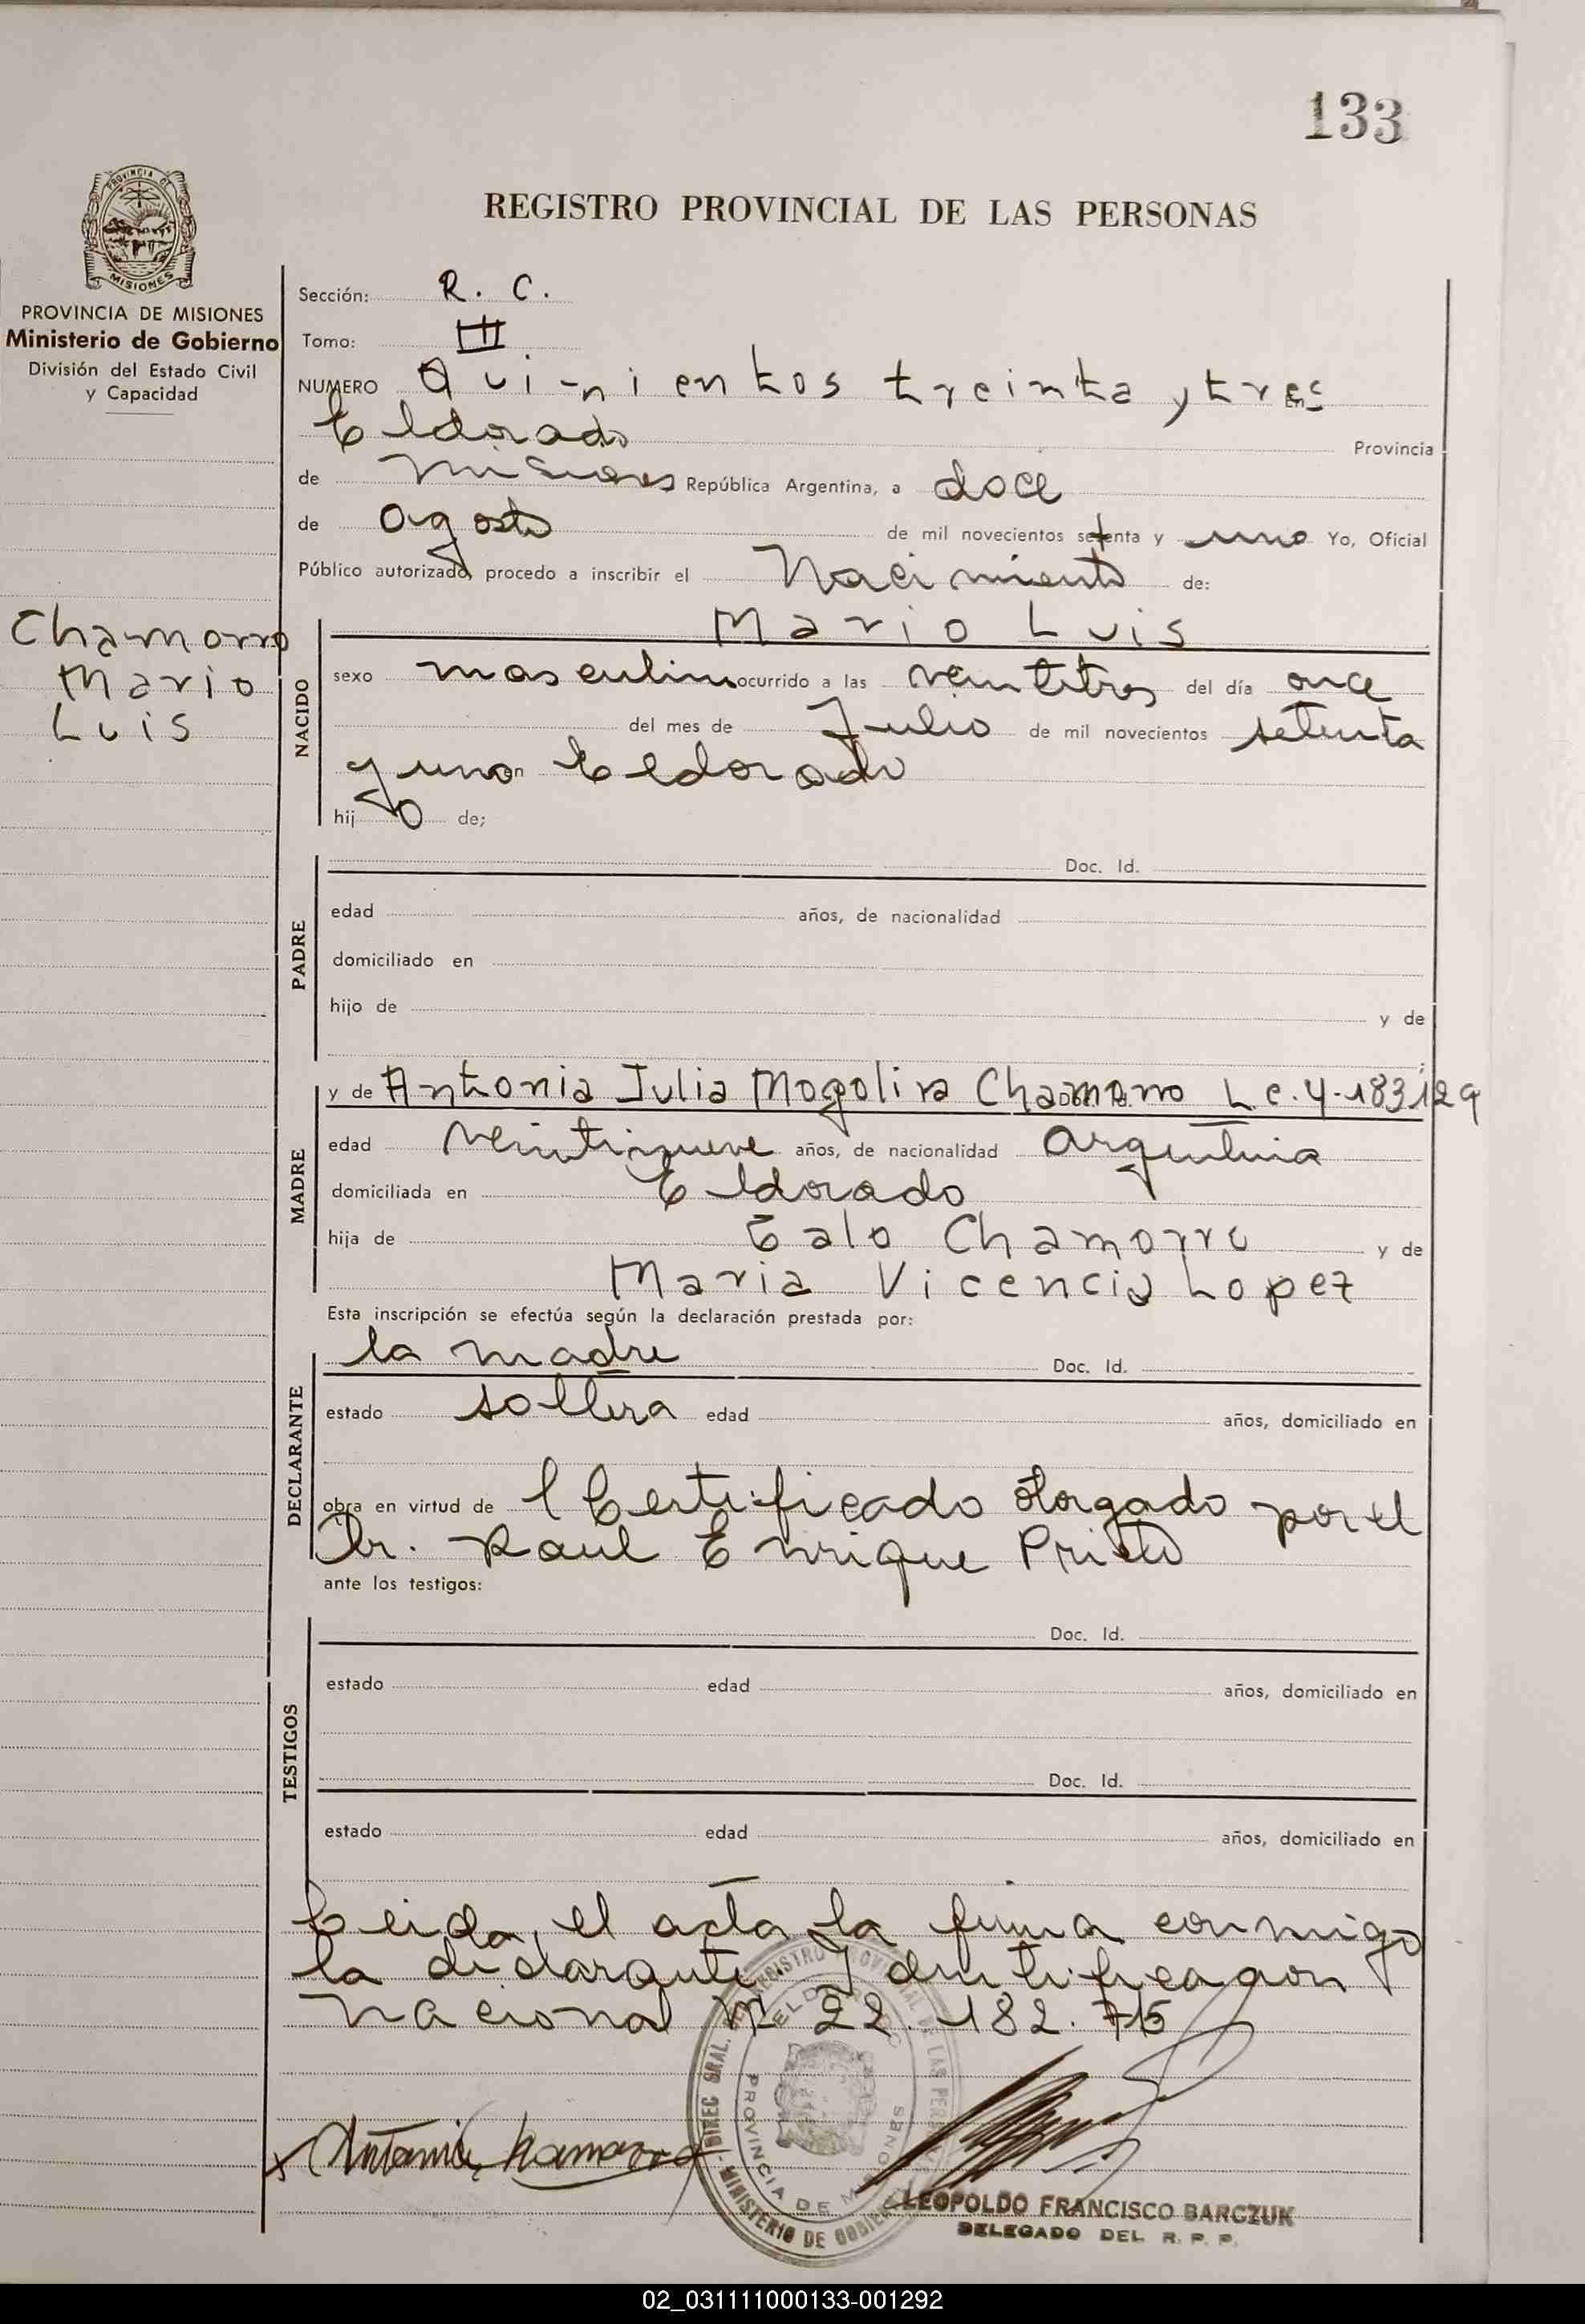 133
PROVINCIA DE
MISIONES
REGISTRO PROVINCIAL DE LAS PERSONAS
PROVINCIA DE MISIONES
Ministerio de Gobierno
División del Estado Civil
y Capacidad
Chamorro
Mario
Luis
Sección: R. C.
Tomo: III
NUMERO Quinientos treinta y tres En
Eldorado Provincia
de Misiones República Argentina, a doce
de agosto de mil novecientos setenta y uno Yo, Oficial
Público autorizado, procedo a inscribir el Nacimiento de:
NACIDO
Mario Luis
sexo masculino ocurrido a las veintitres del día once
del mes de Julio de mil novecientos setenta
y uno en Eldorado
hijo de;
PADRE
Doc. Id.
edad años, de nacionalidad
domiciliado en
hijo de y de
MADRE
y de Antonia Julia Chamorro L c. 4.183129
edad veintinueve años, de nacionalidad argentina
domiciliada en Eldorado
hija de Chamorro y de
Maria Vicencia Lopez
Esta inscripción se efectúa según la declaración prestada por:
DECLARANTE
la madre Doc. Id.
estado soltera edad años, domiciliado en
obra en virtud de l Certificado otorgado por el
Dr. Raul Enrique Prieto
ante los testigos:
TESTIGOS
Doc. Id.
estado edad años, domiciliado en
Doc. Id.
estado edad años, domiciliado en
Leida el acta la firma conmigo
la declarante. Identificacion
nacional Nº 22.182.
Antonia Chamorro
DIREC GRAL. DEL REGISTRO PROVINCIAL DE LAS PERSONAS
ELDORADO
PROVINCIA DE MISIONES
MINISTERIO DE GOBIERNO
LEOPOLDO FRANCISCO BARCZUK
DELEGADO DEL R. P. P.
02_031111000133-001292